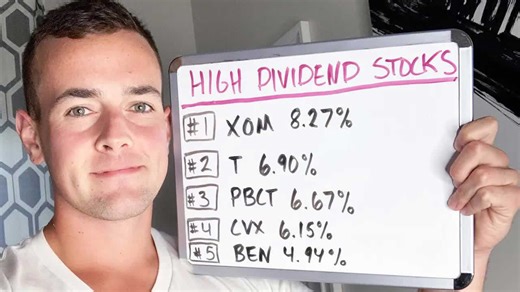 HIGH DIVIDEND STOCKS
#1 XOM 8.27%
#2 T 6.90%
#3 PBCT 6.67%
#4 CVX 6.15%
#5 BEN 4.94%